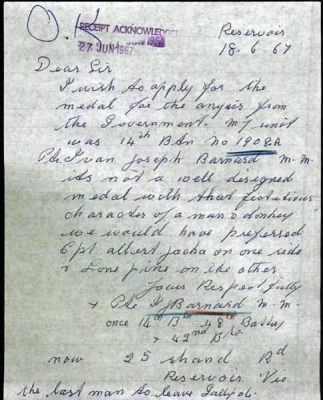 O.K
RECEIPT ACKNOWLEDGED
27 JUN 1967
Reservoir
18.6.67
Dear Sir
I wish to apply for the
medal for the anzacs from
the Government. My unit
was 14th Btn No 1908A
Pte Ivan Joseph Barnard M.M.
its not a well disigned
medal with that fictitious
character of a man & donkey
we would have preferred
Cpt albert jacka on one side
& Lone pine on the other.
Yours Respectfully
+ Pte I J Barnard M.M.
once 14th Btn 48th Battery
+ 42nd Btn
now 25 shand Rd
Reservoir Vic
the last man to leave Gallipoli